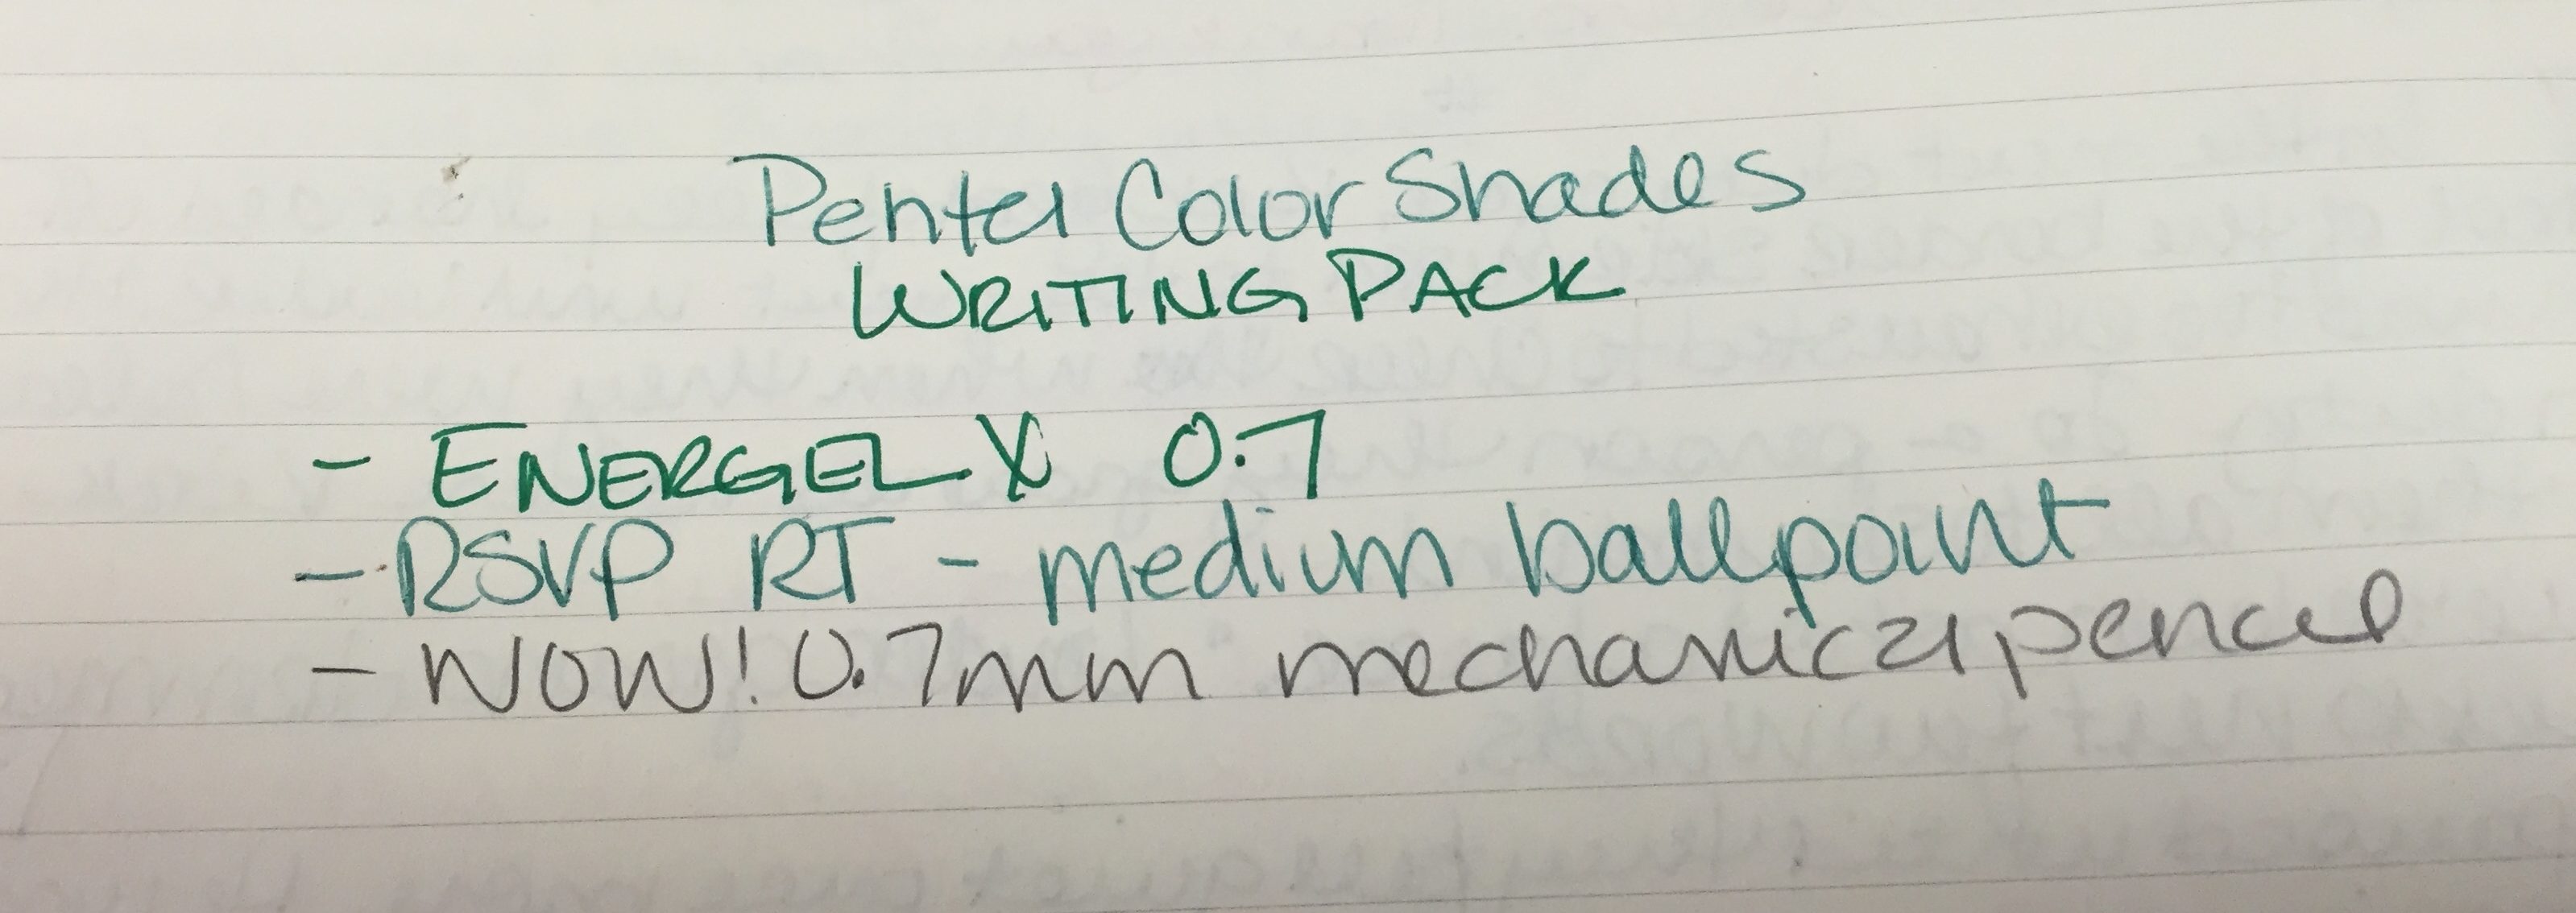 Pentel Color Shades
WRITING PACK
- ENERGEL X 0.7
- RSVP RT - medium ballpoint
- WOW! 0.7mm mechanical pencil